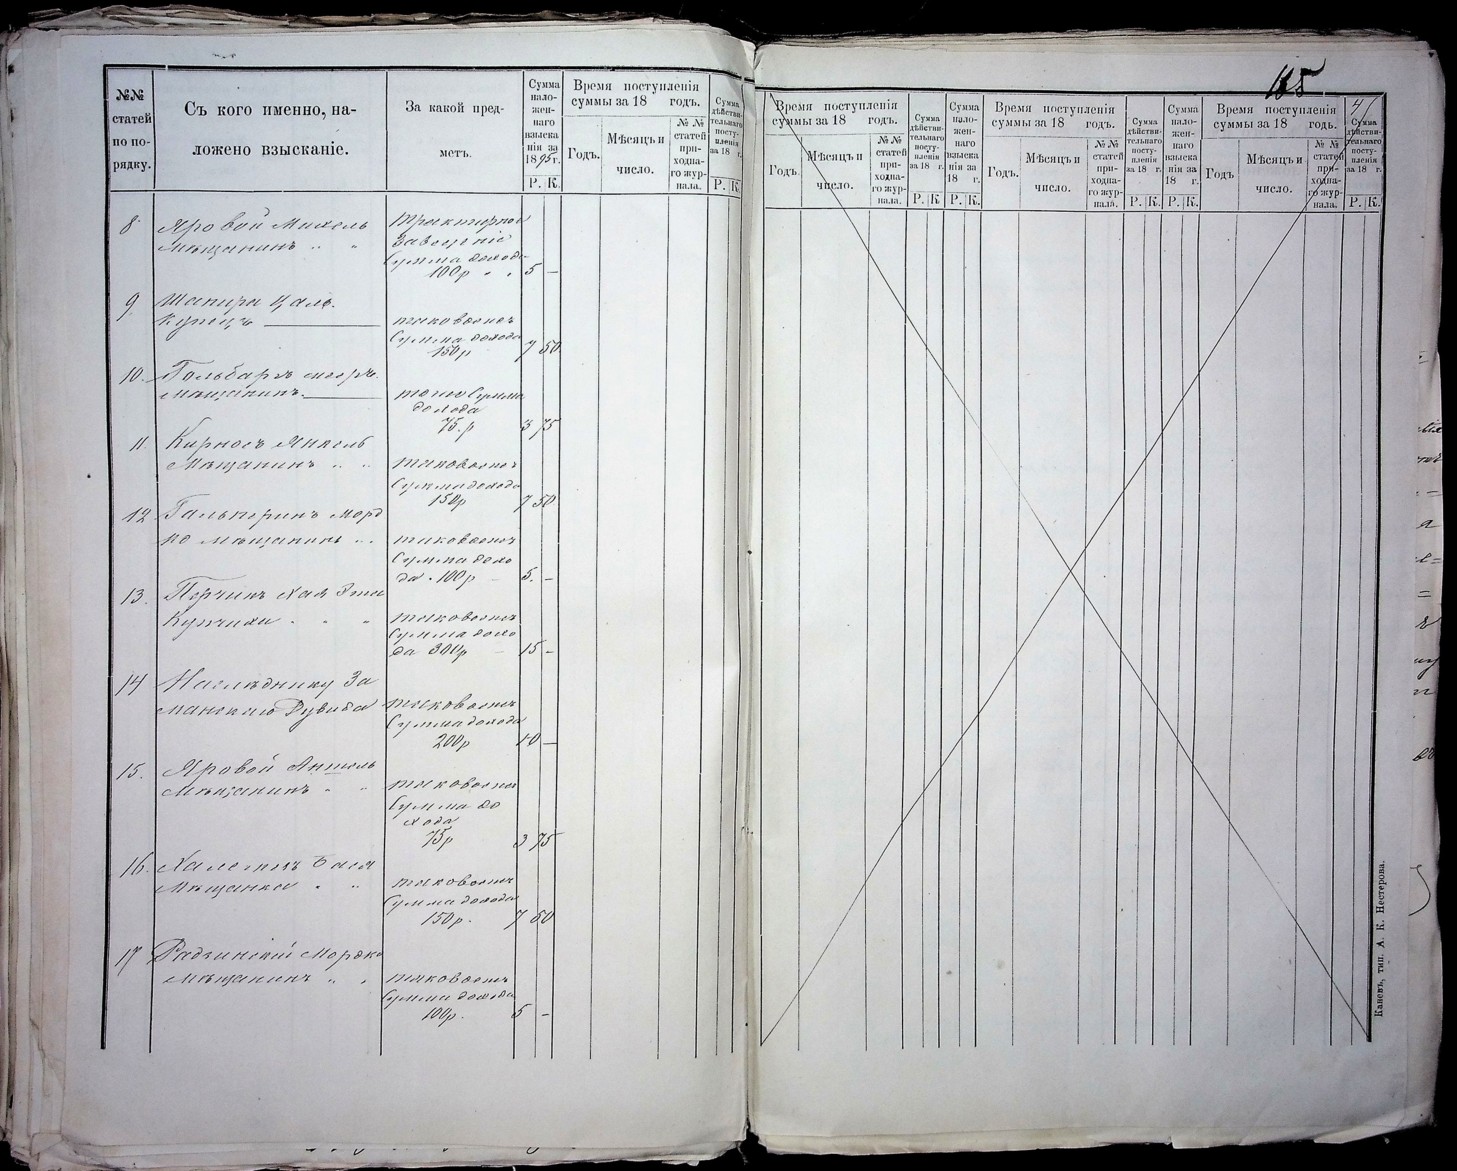 №№ статей по порядку.
Съ кого именно, наложено взысканіе.
За какой предметъ.
Сумма наложеннаго взысканія за 1895 г.
Р. К.
Время поступленія суммы за 18 годъ.
Годъ.
Мѣсяцъ и число.
№№ статей приходнаго журнала.
Сумма дѣйствительнаго поступленія за 18 г.
Р. К.
8
Яровой Михель
Мѣщанинъ " "
Трактирное
Заведеніе
Сумма дохода
100р " " 5 —
9
Шапира Цаль.
Купецъ
таковоеже
Сумма дохода
150р 7 50
10.
Гольбарх
мѣщанинъ.
тоже Сумма
дохода
75.р 3 75
11.
Кирносъ Янкель
Мѣщанинъ " "
таковоеже
Сумма дохода
150р 7 50
12
Гальперинъ Морд
ко мѣщанинъ "
таковоеже
Сумма дохо
да . 100р — 5. —
13.
Перчикъ Хая Эта
Купчиха " "
таковоеже
Сумма дохо
да 300р — 15 —
14
Наслѣднику За
манскаго Рувина
таковоеже
Сумма дохода
200р 10 —
15.
Яровой Аншель
Мѣщанинъ " "
таковоеже
Сумма до
хода
75р 3 75
16.
Бася
Мѣщанка " "
таковоеже
Сумма дохода
150р. 7 50
17
Радзинскій Мордко
мѣщанинъ " "
таковоеже
Сумма дохода
100р. 5 —
165
Время поступленія суммы за 18 годъ.
Годъ.
Мѣсяцъ и число.
№№ статей приходнаго журнала.
Сумма дѣйствительнаго поступленія за 18 г.
Р. К.
Сумма наложеннаго взысканія за 18 г.
Р. К.
Время поступленія суммы за 18 годъ.
Годъ.
Мѣсяцъ и число.
№№ статей приходнаго журнала.
Сумма дѣйствительнаго поступленія за 18 г.
Р. К.
Сумма наложеннаго взысканія за 18 г.
Р. К.
Время поступленія суммы за 18 годъ.
Годъ.
Мѣсяцъ и число.
№№ статей приходнаго журнала.
Сумма дѣйствительнаго поступленія за 18 г.
Р. К.
Каневъ, тип. А. К. Нестерова.